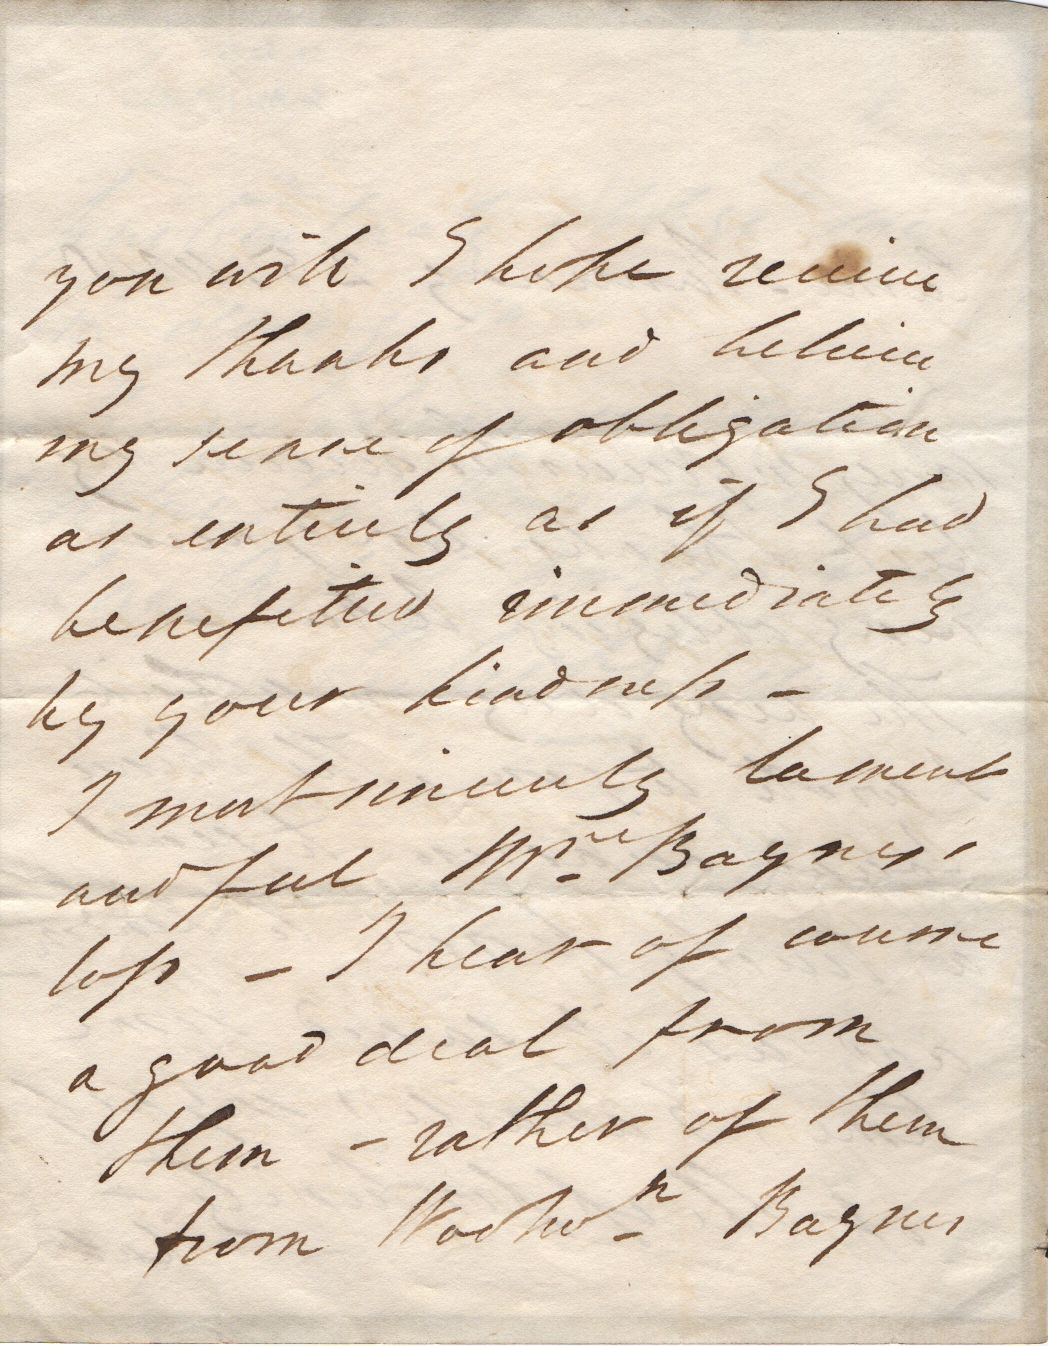 you with I hope receive
my thanks and believe
my sense of obligation
as entirely as if I had
benefitted immediately
by your kindness -
I most sincerely lament
and feel Mrs. Baynes's
loss - I hear of course
a good deal from
them - rather of them
from Baynes